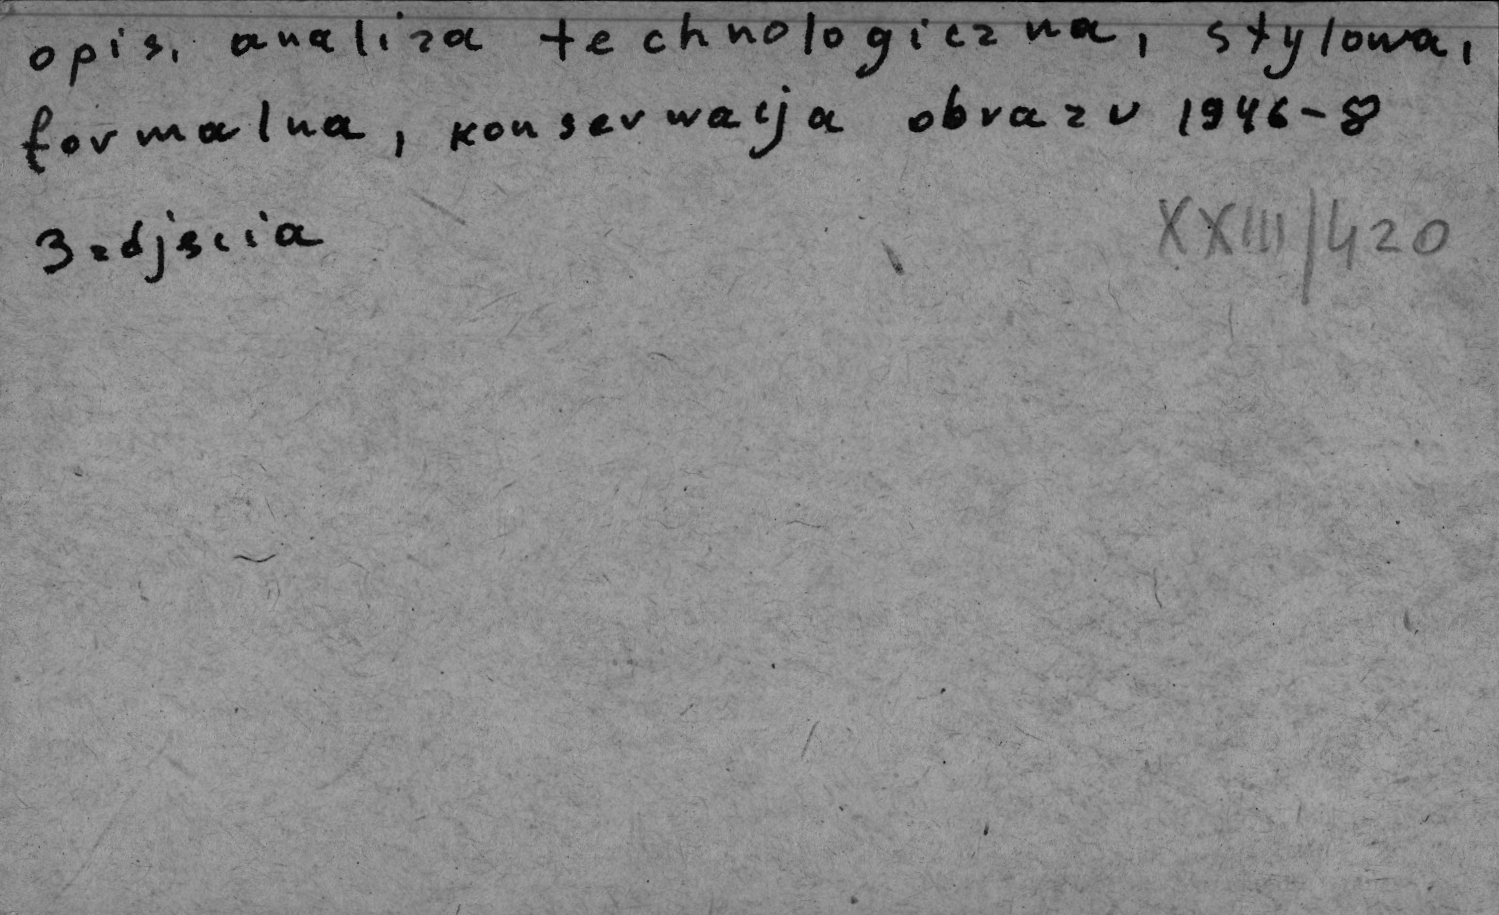 opis, analiza technologiczna, stylowa,
formalna, konserwacja obrazu 1946-8
3 zdjęcia
XXIII/420